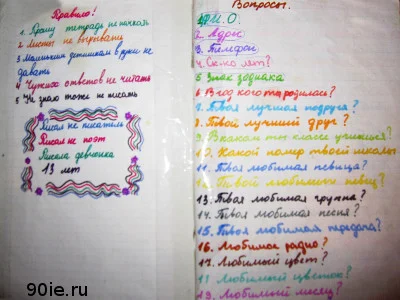 Правило!
1. Эту тетрадь не пачкать
2. Листы не вырывать
3. Маленьким детишкам в руки не
давать
4 Чужих ответов не читать
5 Не знаю тоже не писать
Писал не писатель
Писал не поэт
Писала девчонка
13 лет
Вопросы.
1. Ф.И.О.
2. Адрес
3. Телефон
4. Ск-ко лет?
5. Знак зодиака
6. В год кого ты родилась?
7. Твоя лучшая подруга?
8. Твой лучший друг?
9. В каком ты классе учишься?
10. Какой номер твоей школы
11. Твоя любимая певица?
12. Твой любимый певец?
13. Твоя любимая группа?
14. Твоя любимая песня?
15. Твоя любимая передача?
16. Любимое радио?
17. Любимый цвет?
18. Любимый цветок?
19. Любимый месяц?
90ie.ru